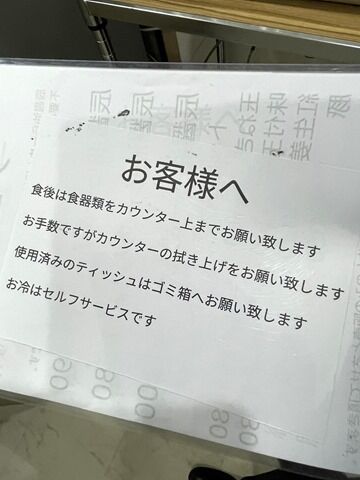 お客様へ
食後は食器類をカウンター上までお願い致します
お手数ですがカウンターの拭き上げをお願い致します
使用済みのティッシュはゴミ箱へお願い致します
お冷はセルフサービスです